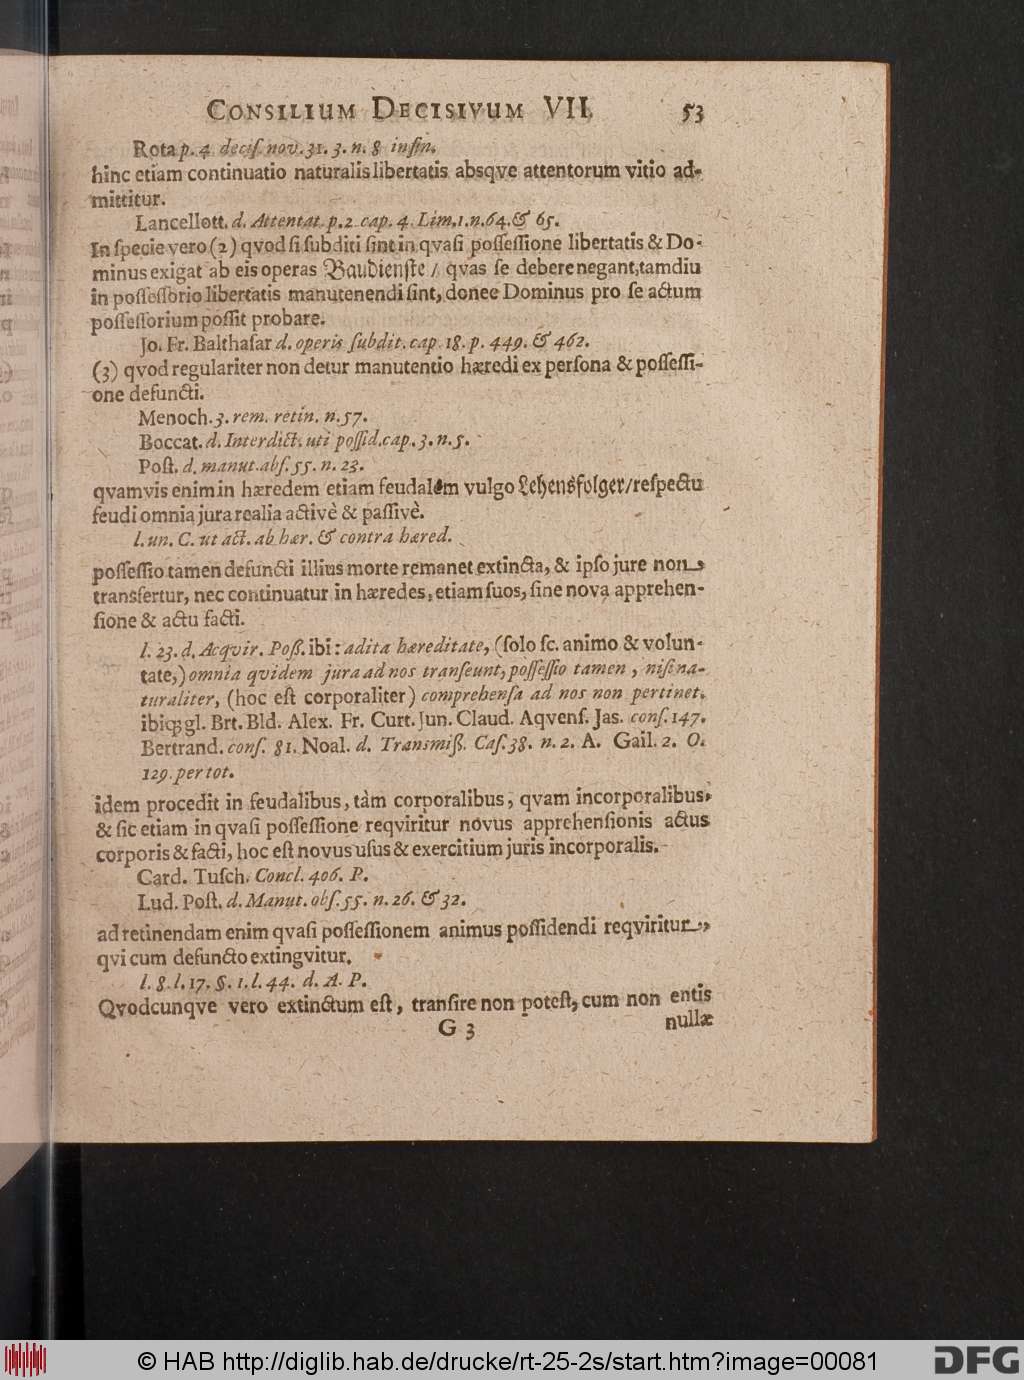 CONSILIUM DECISIVUM VII. 53
Rota p. 4 decis. nov. 31. 3. n. 8 in fin.
hinc etiam continuatio naturalis libertatis absqve attentorum vitio ad-
mittitur.
Lancellott. d. Attentat. p. 2. cap. 4. Lim. 1. n. 64. & 65.
In specie vero (2) qvod si subditi sint in qvasi possessione libertatis & Do-
minus exigat ab eis operas Baudienste / qvas se debere negant, tamdiu
in possessorio libertatis manutenendi sint, donec Dominus pro se actum
possessorium possit probare.
Jo. Fr. Balthasar d. operis subdit. cap. 18. p. 449. & 462.
(3) qvod regulariter non detur manutentio hæredi ex persona & possessi-
one defuncti.
Menoch. 3. rem. retin. n. 57.
Boccat. d. Interdict. uti possid. cap. 3. n. 5.
Post. d. manut. abs. 55. n. 23.
qvamvis enim in hæredem etiam feudalem vulgo Lehensfolger / respectu
feudi omnia jura realia activè & passivè.
l. un. C. ut act. ab hær. & contra hæred.
possessio tamen defuncti illius morte remanet extincta, & ipso jure non
transfertur, nec continuatur in hæredes, etiam suos, sine nova apprehen-
sione & actu facti.
l. 23. d. Acqvir. Poß. ibi: adita hæreditate, (solo sc. animo & volun-
tate,) omnia qvidem jura ad nos transeunt, possessio tamen, nisi na-
turaliter, (hoc est corporaliter) comprehensa ad nos non pertinet.
ibiq; gl. Brt. Bld. Alex. Fr. Curt. Jun. Claud. Aqvens. Jas. cons. 147.
Bertrand. cons. 81. Noal. d. Transmiß. Cas. 38. n. 2. A. Gail. 2. O.
129. per tot.
idem procedit in feudalibus, tàm corporalibus, qvam incorporalibus,
& sic etiam in qvasi possessione reqviritur novus apprehensionis actus
corporis & facti, hoc est novus usus & exercitium juris incorporalis.
Card. Tusch. Concl. 406. P.
Lud. Post. d. Manut. obs. 55. n. 26. & 32.
ad retinendam enim qvasi possessionem animus possidendi reqviritur,
qvi cum defuncto extingvitur.
l. 8. l. 17. §. 1. l. 44. d. A. P.
Qvodcunqve vero extinctum est, transire non potest, cum non entis
G 3 nullæ
© HAB http://diglib.hab.de/drucke/rt-25-2s/start.htm?image=00081
DFG